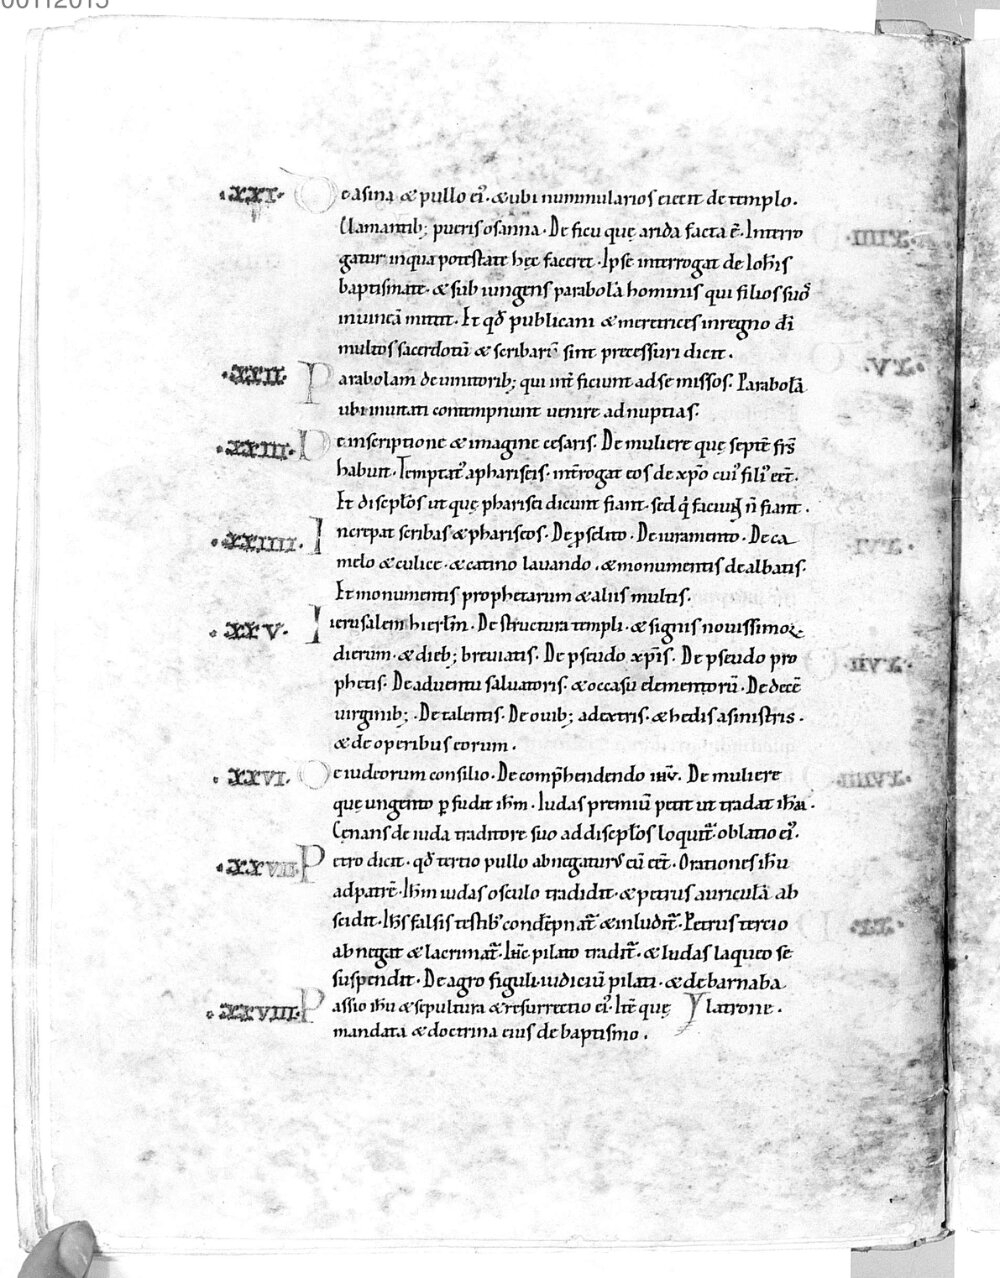 00112015
·XXI· De asina & pullo ei᾽· & ubi nummularios eiecit de templo·
Clamantib; pueris osanna· De ficu quę arida facta ē· Interro
gatur in qua potestate hęc faceret· Ipse interrogat de Ioh̄is
baptismate· & subiungens parabolā hominis qui filios suos
in uineā mittit· Et qd̄ publicani & meretrices in regno dī
multos sacerdotū & scribarū sint precessuri dicit.
·XXII· Parabolam de uinitorib; qui int̄ficiunt ad se missos. Parabolā
ubi inuitati contempnunt uenire ad nuptias.
·XXIII· De inscriptione & imagine cesaris. De muliere quę septē frs̄
habuit· Temptat᾽ a phariseis· int̄rogat eos de xp̄o cui᾽ fili᾽ eēt.
Et discipl̄os ut quę pharisei dicunt fiant· sed q̄ faciunt n̄ fiant.
·XXIIII· Increpat scribas & phariseos. De p̄selito. De iuramento. De ca
melo & culice· & catino lauando· & monumentis dealbatis.
Et monumentis prophetarum & aliis multis.
·XXV· Ierusalem hierl̄m. De structura templi· & signis nouissimoꝝ
dierum· & dieb; breuiatis. De pseudo xp̄is. De pseudo pro
phetis. De aduentu saluatoris· & occasu elementorū. De decē
uirginib;. De talentis. De ouib; a dextris· & hedis a sinistris·
& de operibus eorum.
·XXVI· De iudeorum consilio. De comp̄hendendo ihū. De muliere
quę ungento ꝑfudit ih̄m. Iudas premiū petit ut tradat ih̄m.
Cenans de iuda traditore suo ad discipl̄os loquit᾽· oblatio ei᾽.
·XXVII· Petro dicit· qd̄ tertio pullo abnegaturus eū eēt. Orationes ih̄u
ad patrē. Ih̄m iudas osculo tradidit· & petrus auriculā ab
scidit. Ih̄s falsis testib᾽ condēpnat᾽ & inludit᾽. Petrus tercio
abnegat & lacrimat᾽. Ihc̄ pilato tradit᾽· & Iudas laqueo se
suspendit. De agro figuli· iudiciū pilati· & de barnaba
latrone.
·XXVIII· Passio ih̄u & sepultura & resurrectio ei᾽· Itē quę
mandata & doctrina eius de baptismo.